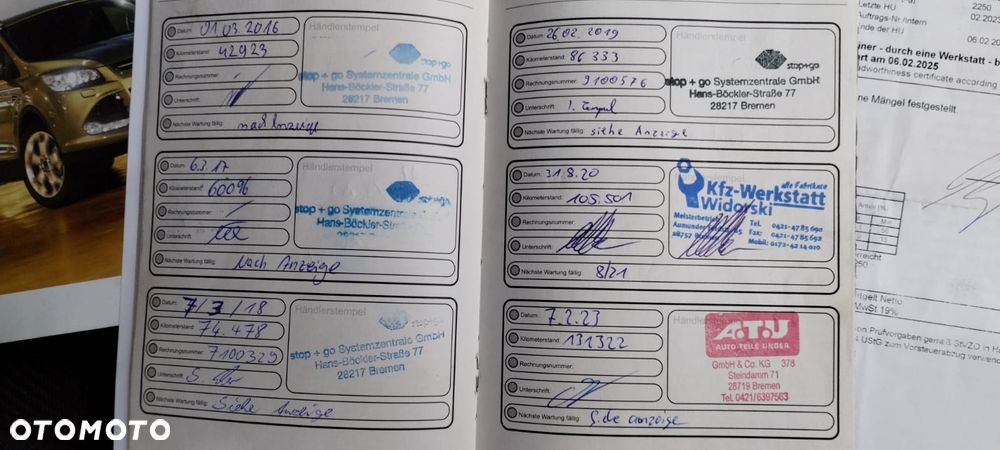 Datum: 01.03.2016
Händlerstempel
Kilometerstand: 42923
Rechnungsnummer:
Unterschrift:
stop + go Systemzentrale GmbH
Hans-Böckler-Straße 77
28217 Bremen
Nächste Wartung fällig: nach Anzeige
Datum: 6.3.17
Händlerstempel
Kilometerstand: 60096
Rechnungsnummer:
Unterschrift:
stop + go Systemzentrale GmbH
Hans-Böckler-Straße 77
28217 Bremen
Nächste Wartung fällig: Nach Anzeige
Datum: 7/3/18
Händlerstempel
Kilometerstand: 74.478
Rechnungsnummer: 7100329
Unterschrift:
stop+go
stop + go Systemzentrale GmbH
Hans-Böckler-Straße 77
28217 Bremen
Nächste Wartung fällig: Siehe Anzeige
Datum: 26.02.2019
Händlerstempel
Kilometerstand: 86 333
Rechnungsnummer: 9100576
Unterschrift:
stop+go
stop + go Systemzentrale GmbH
Hans-Böckler-Straße 77
28217 Bremen
Nächste Wartung fällig: siehe Anzeige
Datum: 31.8.20
Kilometerstand: 105.501
Rechnungsnummer:
Unterschrift:
alle Fabrikate
Kfz-Werkstatt
Widorski
Meisterbetrieb
28757
Tel. 0421-4785690
Fax: 0421-4785692
Mobil: 0172-4214010
Nächste Wartung fällig: 8/21
Datum: 7.2.23
Kilometerstand: 131322
Rechnungsnummer:
Unterschrift:
A.T.U
AUTO-TEILE UNGER
GmbH & Co. KG 378
Steindamm 71
28719 Bremen
Tel. 0421/6397563
Nächste Wartung fällig: Siehe anzeige
Letzte HU
2250
02.2023
Auftrags-Nr./intern
Ende der HU
06.02.20
iner - durch eine Werkstatt - b
rt am 06.02.2025
adworthiness certificate according
ne Mängel festgestellt.
rreicht
250
ntgelt Netto
MwSt 19%
on Prüfvorgaben gemäß StVZO in H
UStG zum Vorsteuerabzug verwend
OTOMOTO